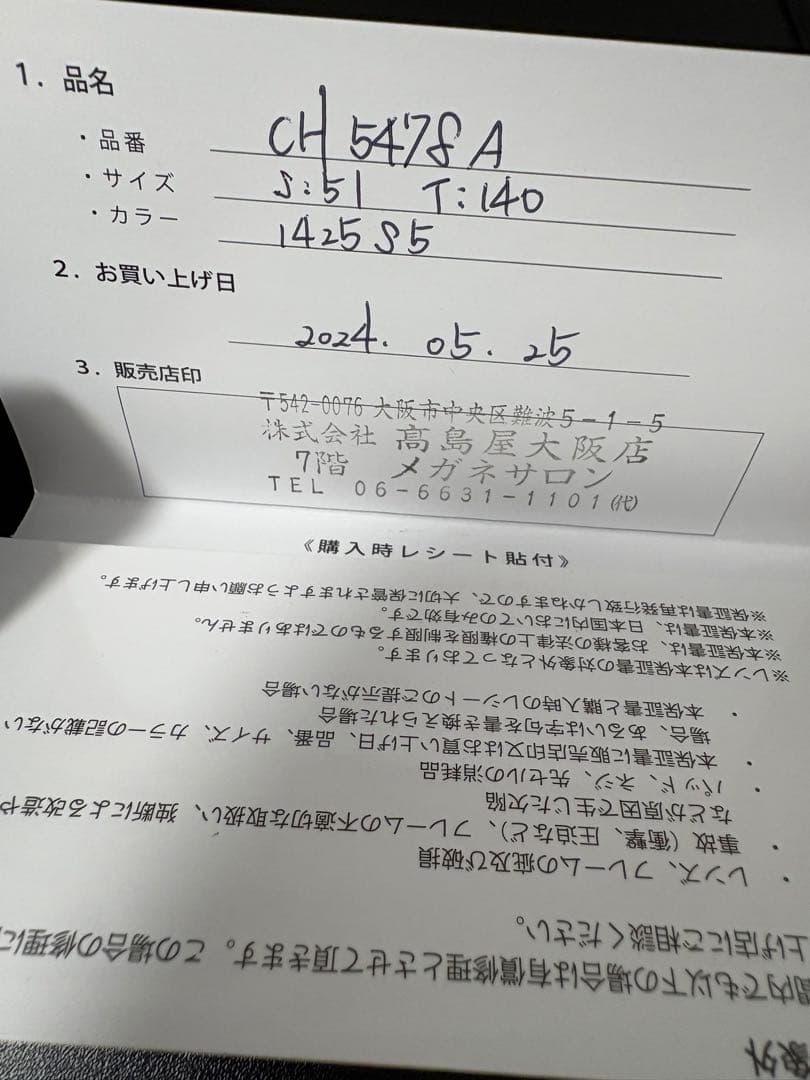 1. 品名
・品番 CH 5478 A
・サイズ S:51 T:140
・カラー 1425 S5
2. お買い上げ日
2024. 05. 25
3. 販売店印
〒542-0076 大阪市中央区難波5-1-5
株式会社 髙島屋大阪店
7階 メガネサロン
TEL 06-6631-1101(代)
《購入時レシート貼付》
象外
間内でも以下の場合は有償修理とさせて頂きます。この場合の修理に
上げ店にご相談ください。
・レンズ、フレームの疵及び破損
・事故(衝撃、圧迫など)、フレームの不適切な取扱い、独断による改造や
などが原因で生じた欠陥
・パッド、ネジ、先セルの消耗品
・本保証書に販売店印又はお買い上げ日、品番、サイズ、カラーの記載がない
場合、あるいは字句を書き換えられた場合
・本保証書と購入時のレシートのご提示がない場合
※レンズは本保証書の対象外となっております。
※本保証書は、お客様の法律上の権限を制限するものではありません。
※本保証書は、日本国内においてのみ有効です。
※保証書は再発行致しかねますので、大切に保管されますようお願い申し上げます。